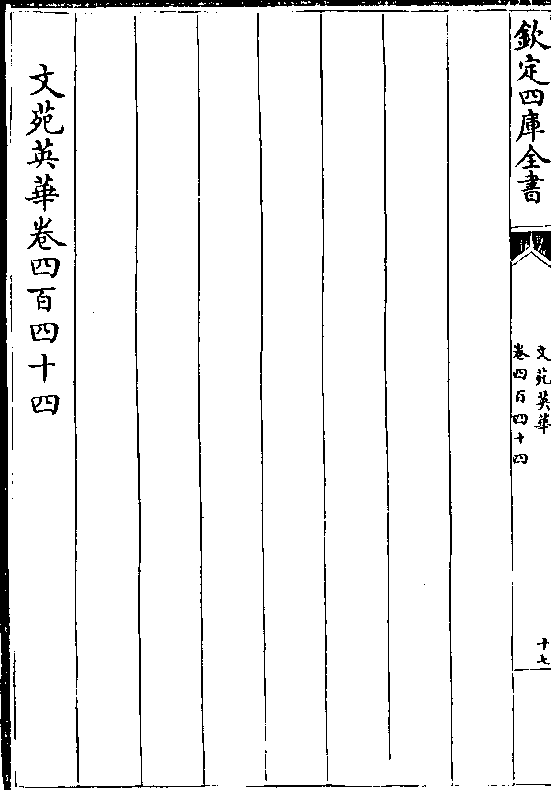 欽定四庫全書
文苑英華
卷四百四十四
十七
文苑英華卷四百四十四